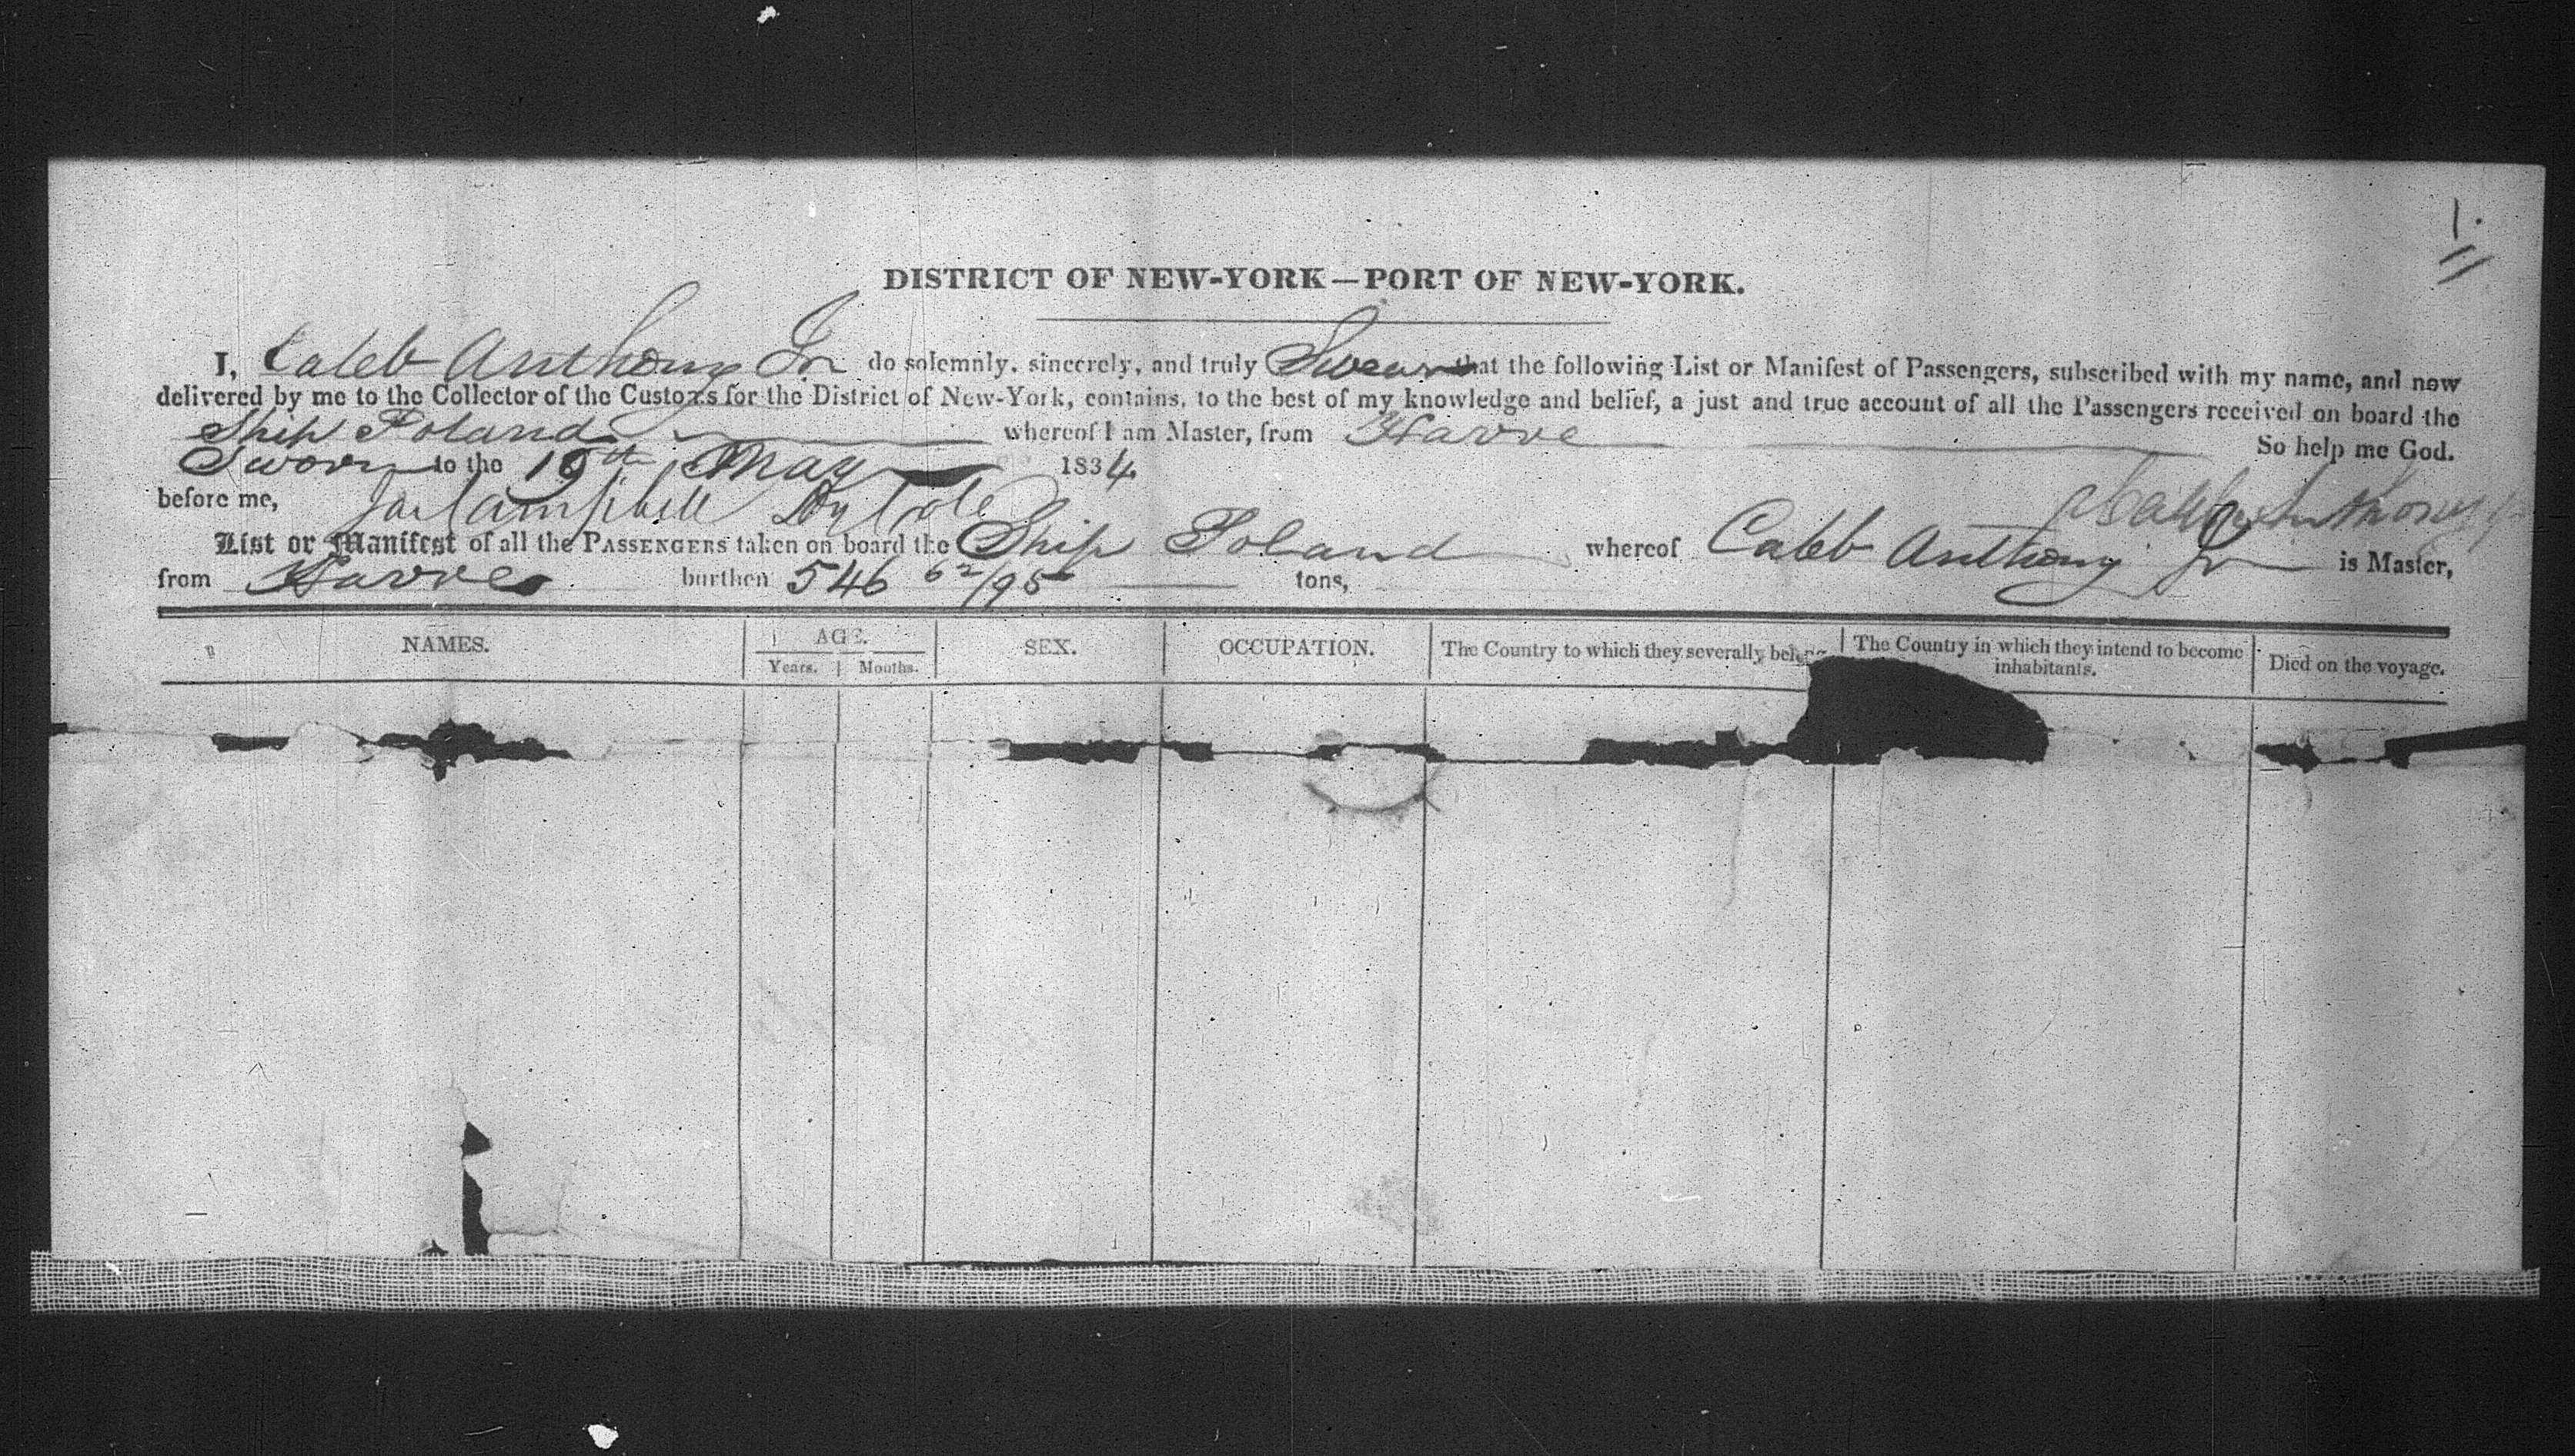 1.
DISTRICT OF NEW-YORK—PORT OF NEW-YORK.
I, Caleb Anthony Jr do solemnly, sincerely, and truly Swear that the following List or Manifest of Passengers, subscribed with my name, and now
delivered by me to the Collector of the Customs for the District of New-York, contains, to the best of my knowledge and belief, a just and true account of all the Passengers received on board the
Ship Poland whereof I am Master, from Havre So help me God.
Sworn to the May 1834
before me, Campbell Caleb Anthony Jr
List or Manifest of all the PASSENGERS taken on board the Ship Poland whereof Caleb Anthony Jr is Master,
from Havre burthen 546 62/95 tons,
NAMES. AGE. SEX. OCCUPATION. The Country to which they severally belong The Country in which they intend to become inhabitants. Died on the voyage.
Years. Months.